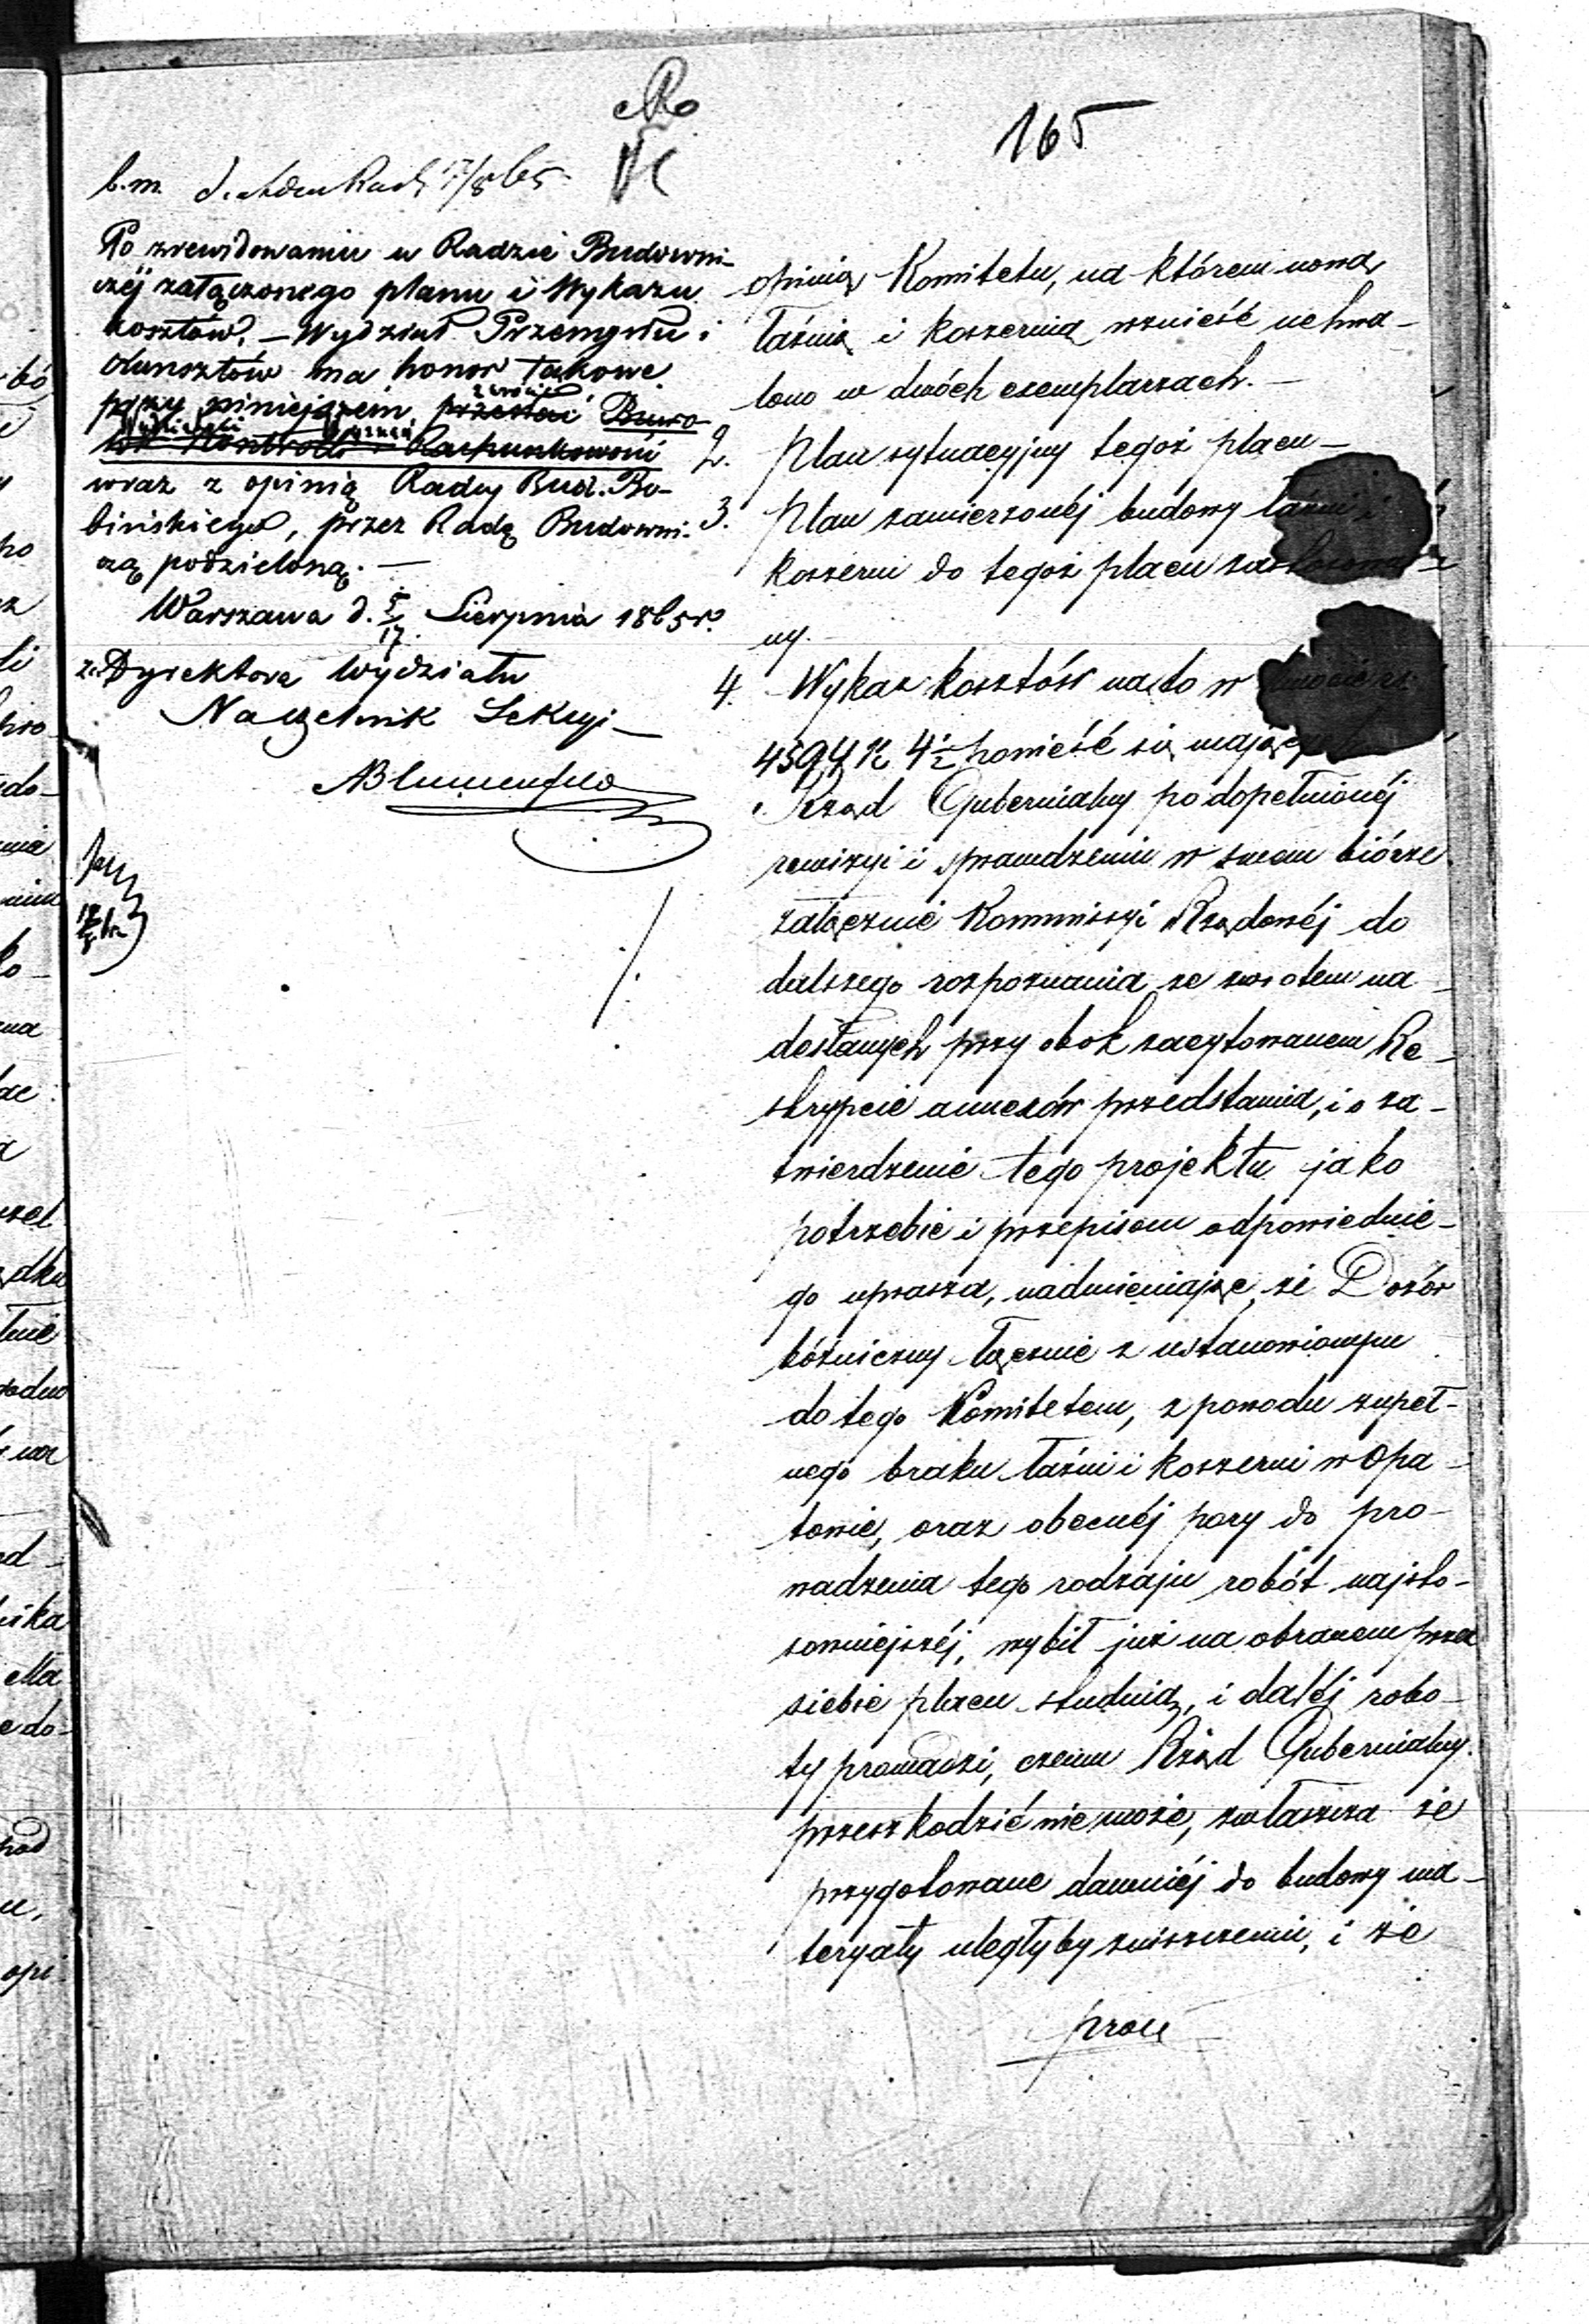 165
b.m.
Po zrewidowaniu w Radzie Budowni-
czéj załączonego planu i Wykazu
kosztów. — Wydział Przemysłu i
Kunsztów ma honor takowe
zwrócić
przy niniejszém przesłać Biuro-
Wyznań
Kontrolli Rachunkowości
wraz z opinią Radcy Bud. Bo-
bińskiego, przez Radę Budowni-
czą podzieloną. —
Warszawa d. 5/17 Sierpnia 1865 r.
za Dyrektora Wydziału
Naczelnik Sekcyi —
opinią Komitetu, na którem nową
łaźnią i koszernią wznieść uchwa-
lono w dwóch exemplarzach. —
2. Plan sytuacyjny tegoż placu —
3. Plan zamierzonéj budowy łaźni i
koszerni do tegoż placu zastosowa-
ny. —
4. Wykaz kosztów na to w
4594 k 4½ ponieść się mający
Rząd Gubernialny po dopełnionéj
rewizyi i sprawdzeniu w swem biórze
załącznie Kommissyi Rządowéj do
dalszego rozpoznania ze zwrotem na-
desłanych przy obok zacytowanem Re-
skrypcie annexów przedstawia, i o za-
twierdzenie tego projektu jako
potrzebie i przepisom odpowiednie-
go uprasza, nadmieniając, że Dozór
bóżniczny łącznie z ustanowionym
do tego Komitetem, z powodu zupeł-
nego braku łaźni i koszerni w Opa-
towie, oraz obecnéj pory do pro-
wadzenia tego rodzaju robót najsto-
sowniejszéj, wybił już na obranem przez
siebie placu studnią, i daléj robo-
ty prowadzi, czemu Rząd Gubernialny
przeszkodzić nie może, zwłaszcza że
przygotowane dawniéj do budowy ma-
teryały uległyby zniszczeniu, i że